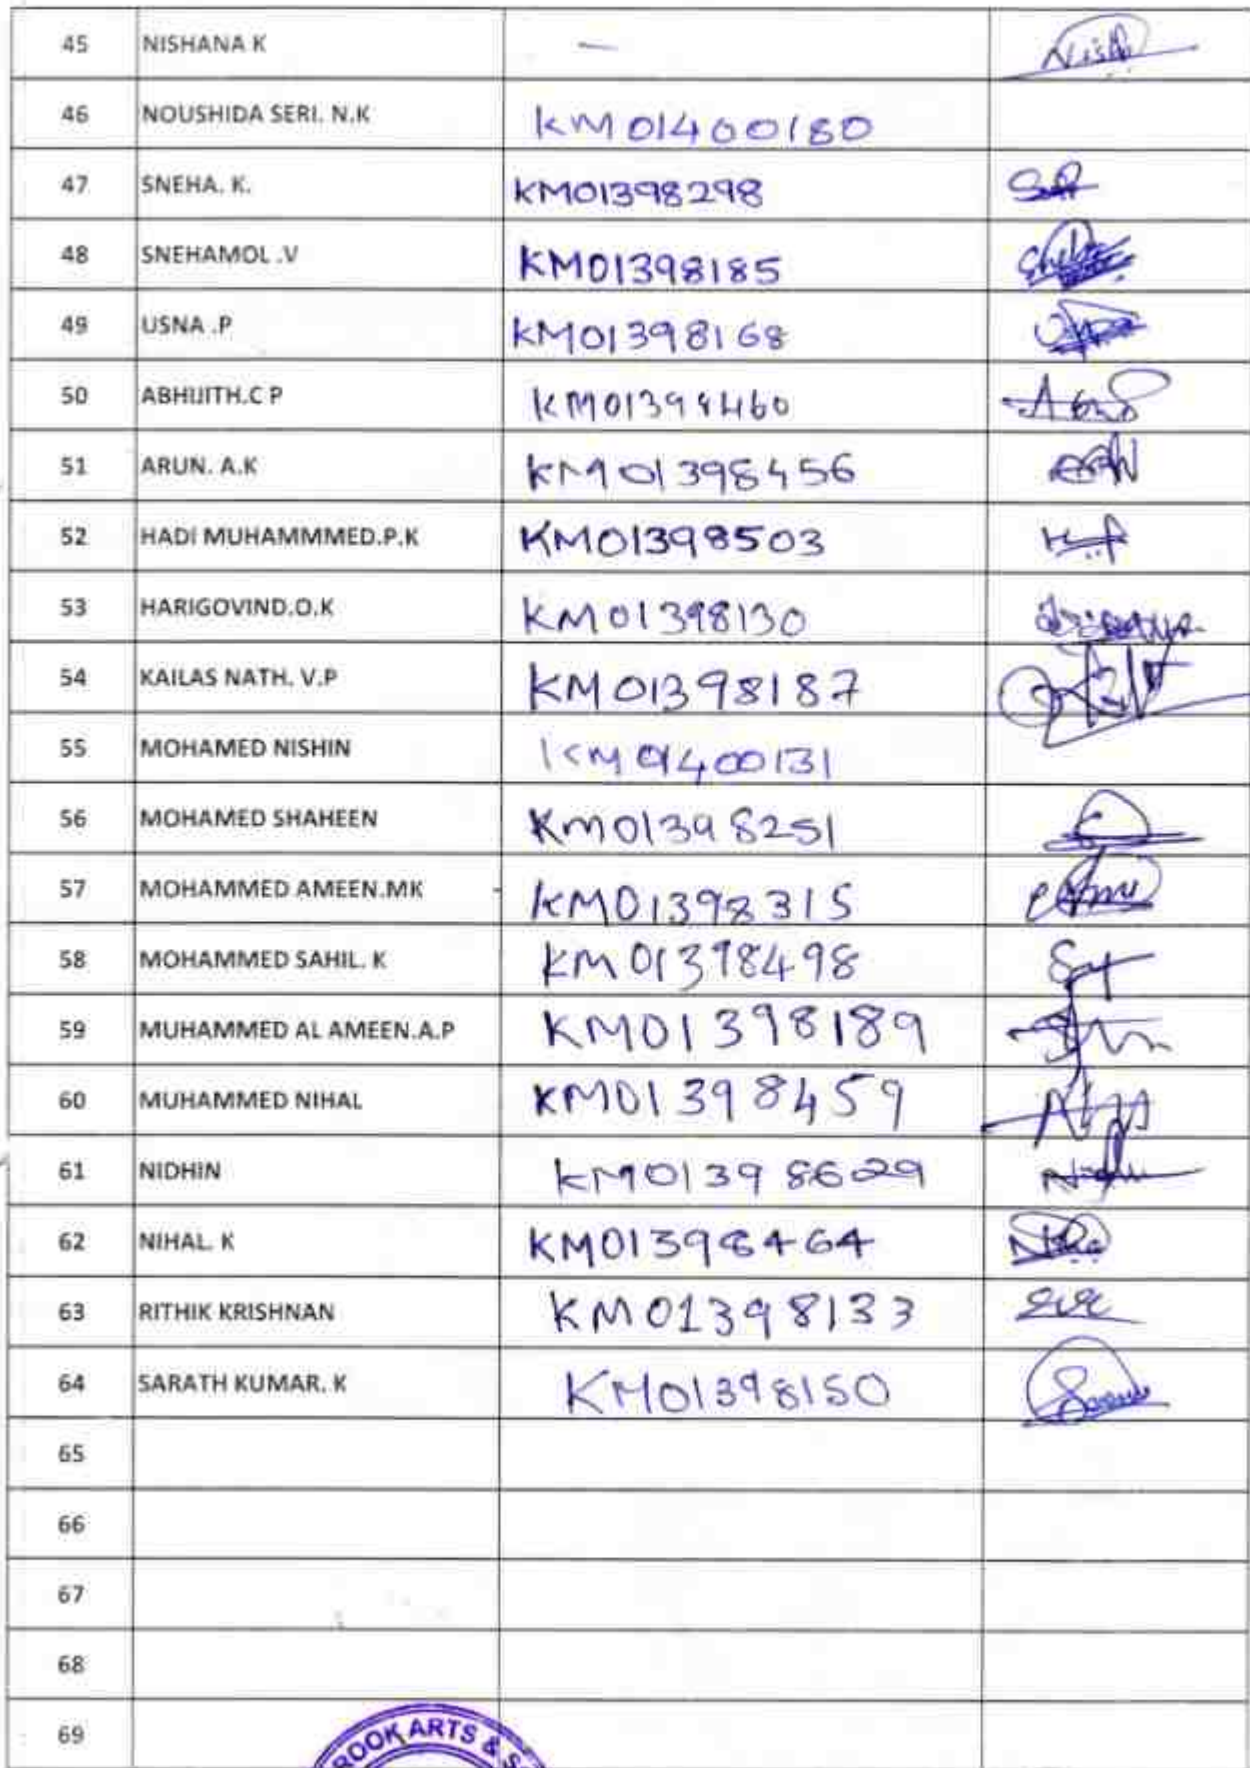 45 NISHANA K -
46 NOUSHIDA SERI. N.K KM01400180
47 SNEHA. K. KM01398298
48 SNEHAMOL .V KM01398185
49 USNA .P KM01398168
50 ABHIJITH.C P KM01398460
51 ARUN. A.K KM01398456
52 HADI MUHAMMMED.P.K KM01398503
53 HARIGOVIND.O.K KM01398130
54 KAILAS NATH. V.P KM01398187
55 MOHAMED NISHIN KM01400131
56 MOHAMED SHAHEEN KM01398251
57 MOHAMMED AMEEN.MK KM01398315
58 MOHAMMED SAHIL. K KM01398498
59 MUHAMMED AL AMEEN.A.P KM01398189
60 MUHAMMED NIHAL KM01398459
61 NIDHIN KM01398629
62 NIHAL. K KM01398464
63 RITHIK KRISHNAN KM01398133
64 SARATH KUMAR. K KM01398150
65
66
67
68
69
ROOK ARTS & S